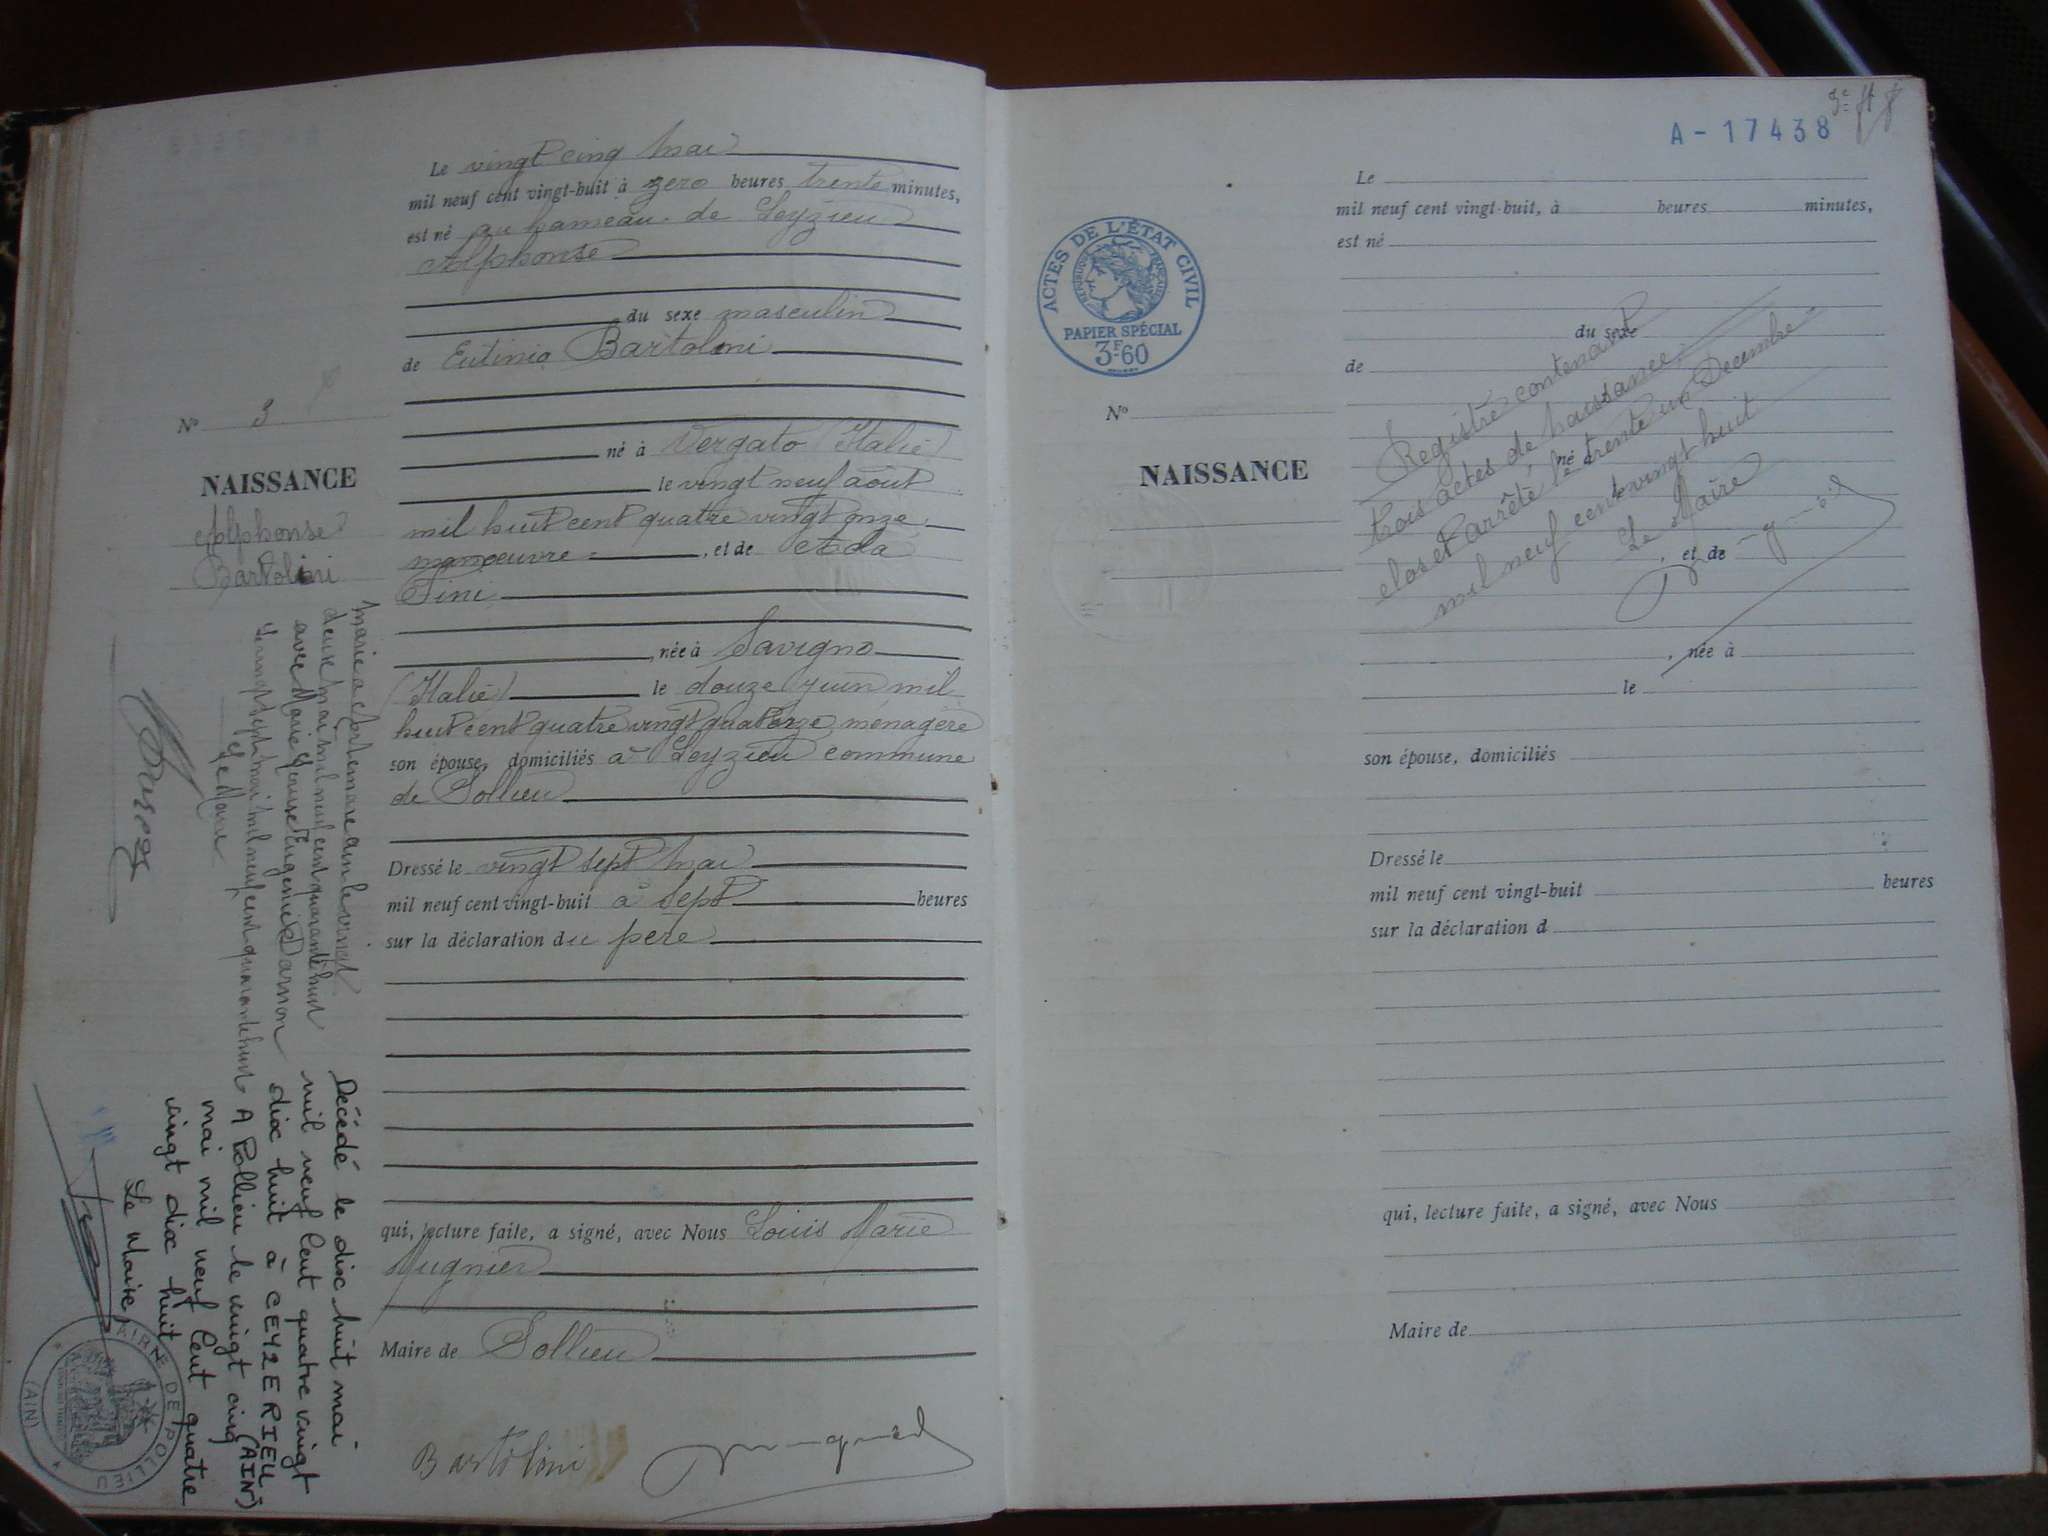 Le vingt cinq mai
mil neuf cent vingt-huit à zero heures trente minutes,
est né au hameau de Leyzieu
Alphonse
du sexe masculin
de Eutinio Bartolini
né à Vergato (Italie)
le vingt neuf août
mil huit cent quatre vingt onze
manoeuvre, et de Ada
Pini
, née à Savigno
(Italie) le douze juin mil
huit cent quatre vingt quatorze ménagère
son épouse, domiciliés à Leyzieu commune
de Pollieu
Dressé le vingt sept mai
mil neuf cent vingt-huit à sept heures
sur la déclaration du père
qui, lecture faite, a signé, avec Nous Louis Marie
Mugnier
Maire de Pollieu
Bartolini
N° 3
NAISSANCE
Alphonse
Bartolini
Marié à Artemare ain le vingt
deux mai mil neuf cent quarante huit
avec Marie Louise Eugénie Darnon
Le vingt sept mai mil neuf cent quarante huit
Le Maire
Décédé le dix huit mai
mil neuf cent quatre vingt
dix huit à CEYZERIEU
(AIN)
A Pollieu le vingt cinq
mai mil neuf cent quatre
vingt dix huit
Le Maire
MAIRIE DE POLLIEU
(AIN)
A-17438
ACTES DE L'ÉTAT CIVIL
RÉPUBLIQUE FRANÇAISE
PAPIER SPÉCIAL
3F60
Le
mil neuf cent vingt-huit, à heures minutes,
est né
du sexe
de
N°
NAISSANCE
né à
, et de
, née à
le
son épouse, domiciliés
Dressé le
mil neuf cent vingt-huit heures
sur la déclaration d
qui, lecture faite, a signé, avec Nous
Maire de
Registre contenant
trois actes de naissance
clos et arrêté le trente un Decembre
mil neuf cent vingt huit
Le Maire